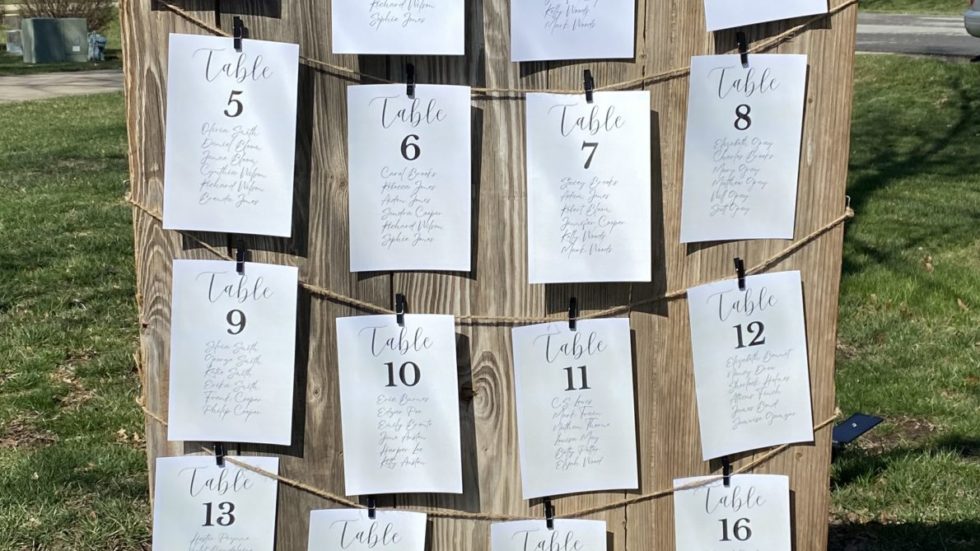 Richard Wilson
Sophia Jones
Kitty Woods
Mark Woods
Table
5
Olivia Smith
Daniel Bloom
James Bloom
Cynthia Wilson
Richard Wilson
Brenda Jones
Table
6
Carol Brooks
Rebecca Jones
Aidan Jones
Sandra Cooper
Richard Wilson
Sophia Jones
Table
7
Stacey Brooks
Adam Jones
Robert Bloom
Jennifer Cooper
Kitty Woods
Mark Woods
Table
8
Elizabeth Gray
Charles Brooks
Mary Gray
Matthew Gray
Neil Gray
Gray
Table
9
Smith
George Smith
Katie Smith
Smith
Frank Cooper
Philip Cooper
Table
10
Eric Barnes
Edgar Poe
Emily Bronte
Jane Austen
Harper Lee
Kitty Austen
Table
11
C.S Lewis
Mark Twain
Mathew Thorne
Louisa May
Betty Potter
Elijah Wood
Table
12
Elizabeth Bennet
Nancy Drew
Sherlock Holmes
Atticus Finch
James Bond
Granger
Table
13
Hester Prynne
Table
Table
Table
16